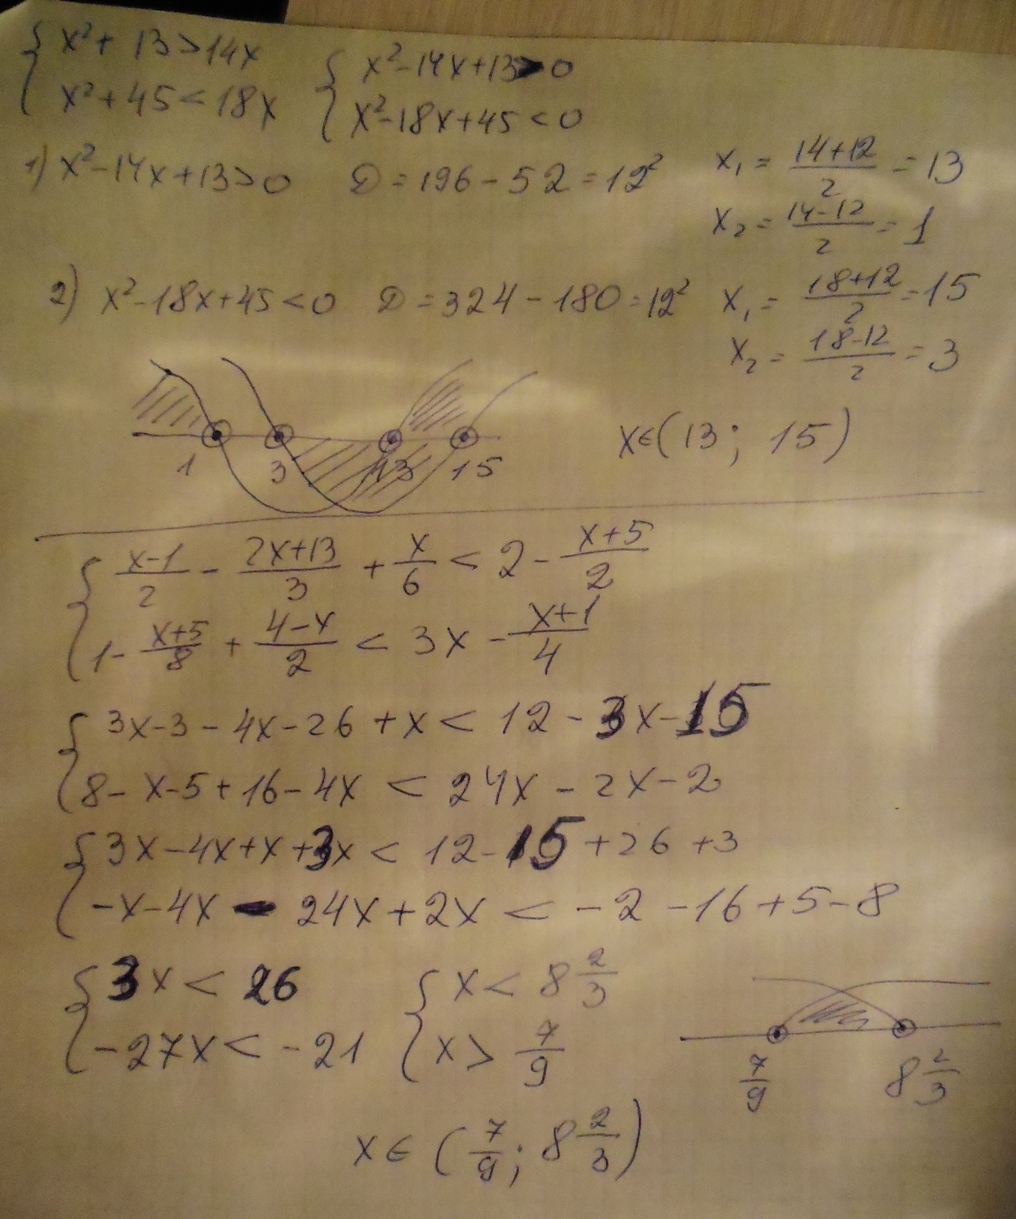 { x²+13>14x   { x²-14x+13>0
{ x²+45<18x   { x²-18x+45<0
1) x²-14x+13>0   D=196-52=12²   x₁ = (14+12)/2 = 13
x₂ = (14-12)/2 = 1
2) x²-18x+45<0   D=324-180=12²   x₁ = (18+12)/2 = 15
x₂ = (18-12)/2 = 3
1 3 13 15   x∈(13; 15)
{ (x-1)/2 - (2x+13)/3 + x/6 < 2 - (x+5)/2
{ 1 - (x+5)/8 + (4-x)/2 < 3x - (x+1)/4
{ 3x-3-4x-26+x < 12-3x-15
{ 8-x-5+16-4x < 24x-2x-2
{ 3x-4x+x+3x < 12-15+26+3
{ -x-4x-24x+2x < -2-16+5-8
{ 3x < 26   { x < 8 2/3
{ -27x < -21   { x > 7/9
7/9   8 2/3
x∈(7/9; 8 2/3)